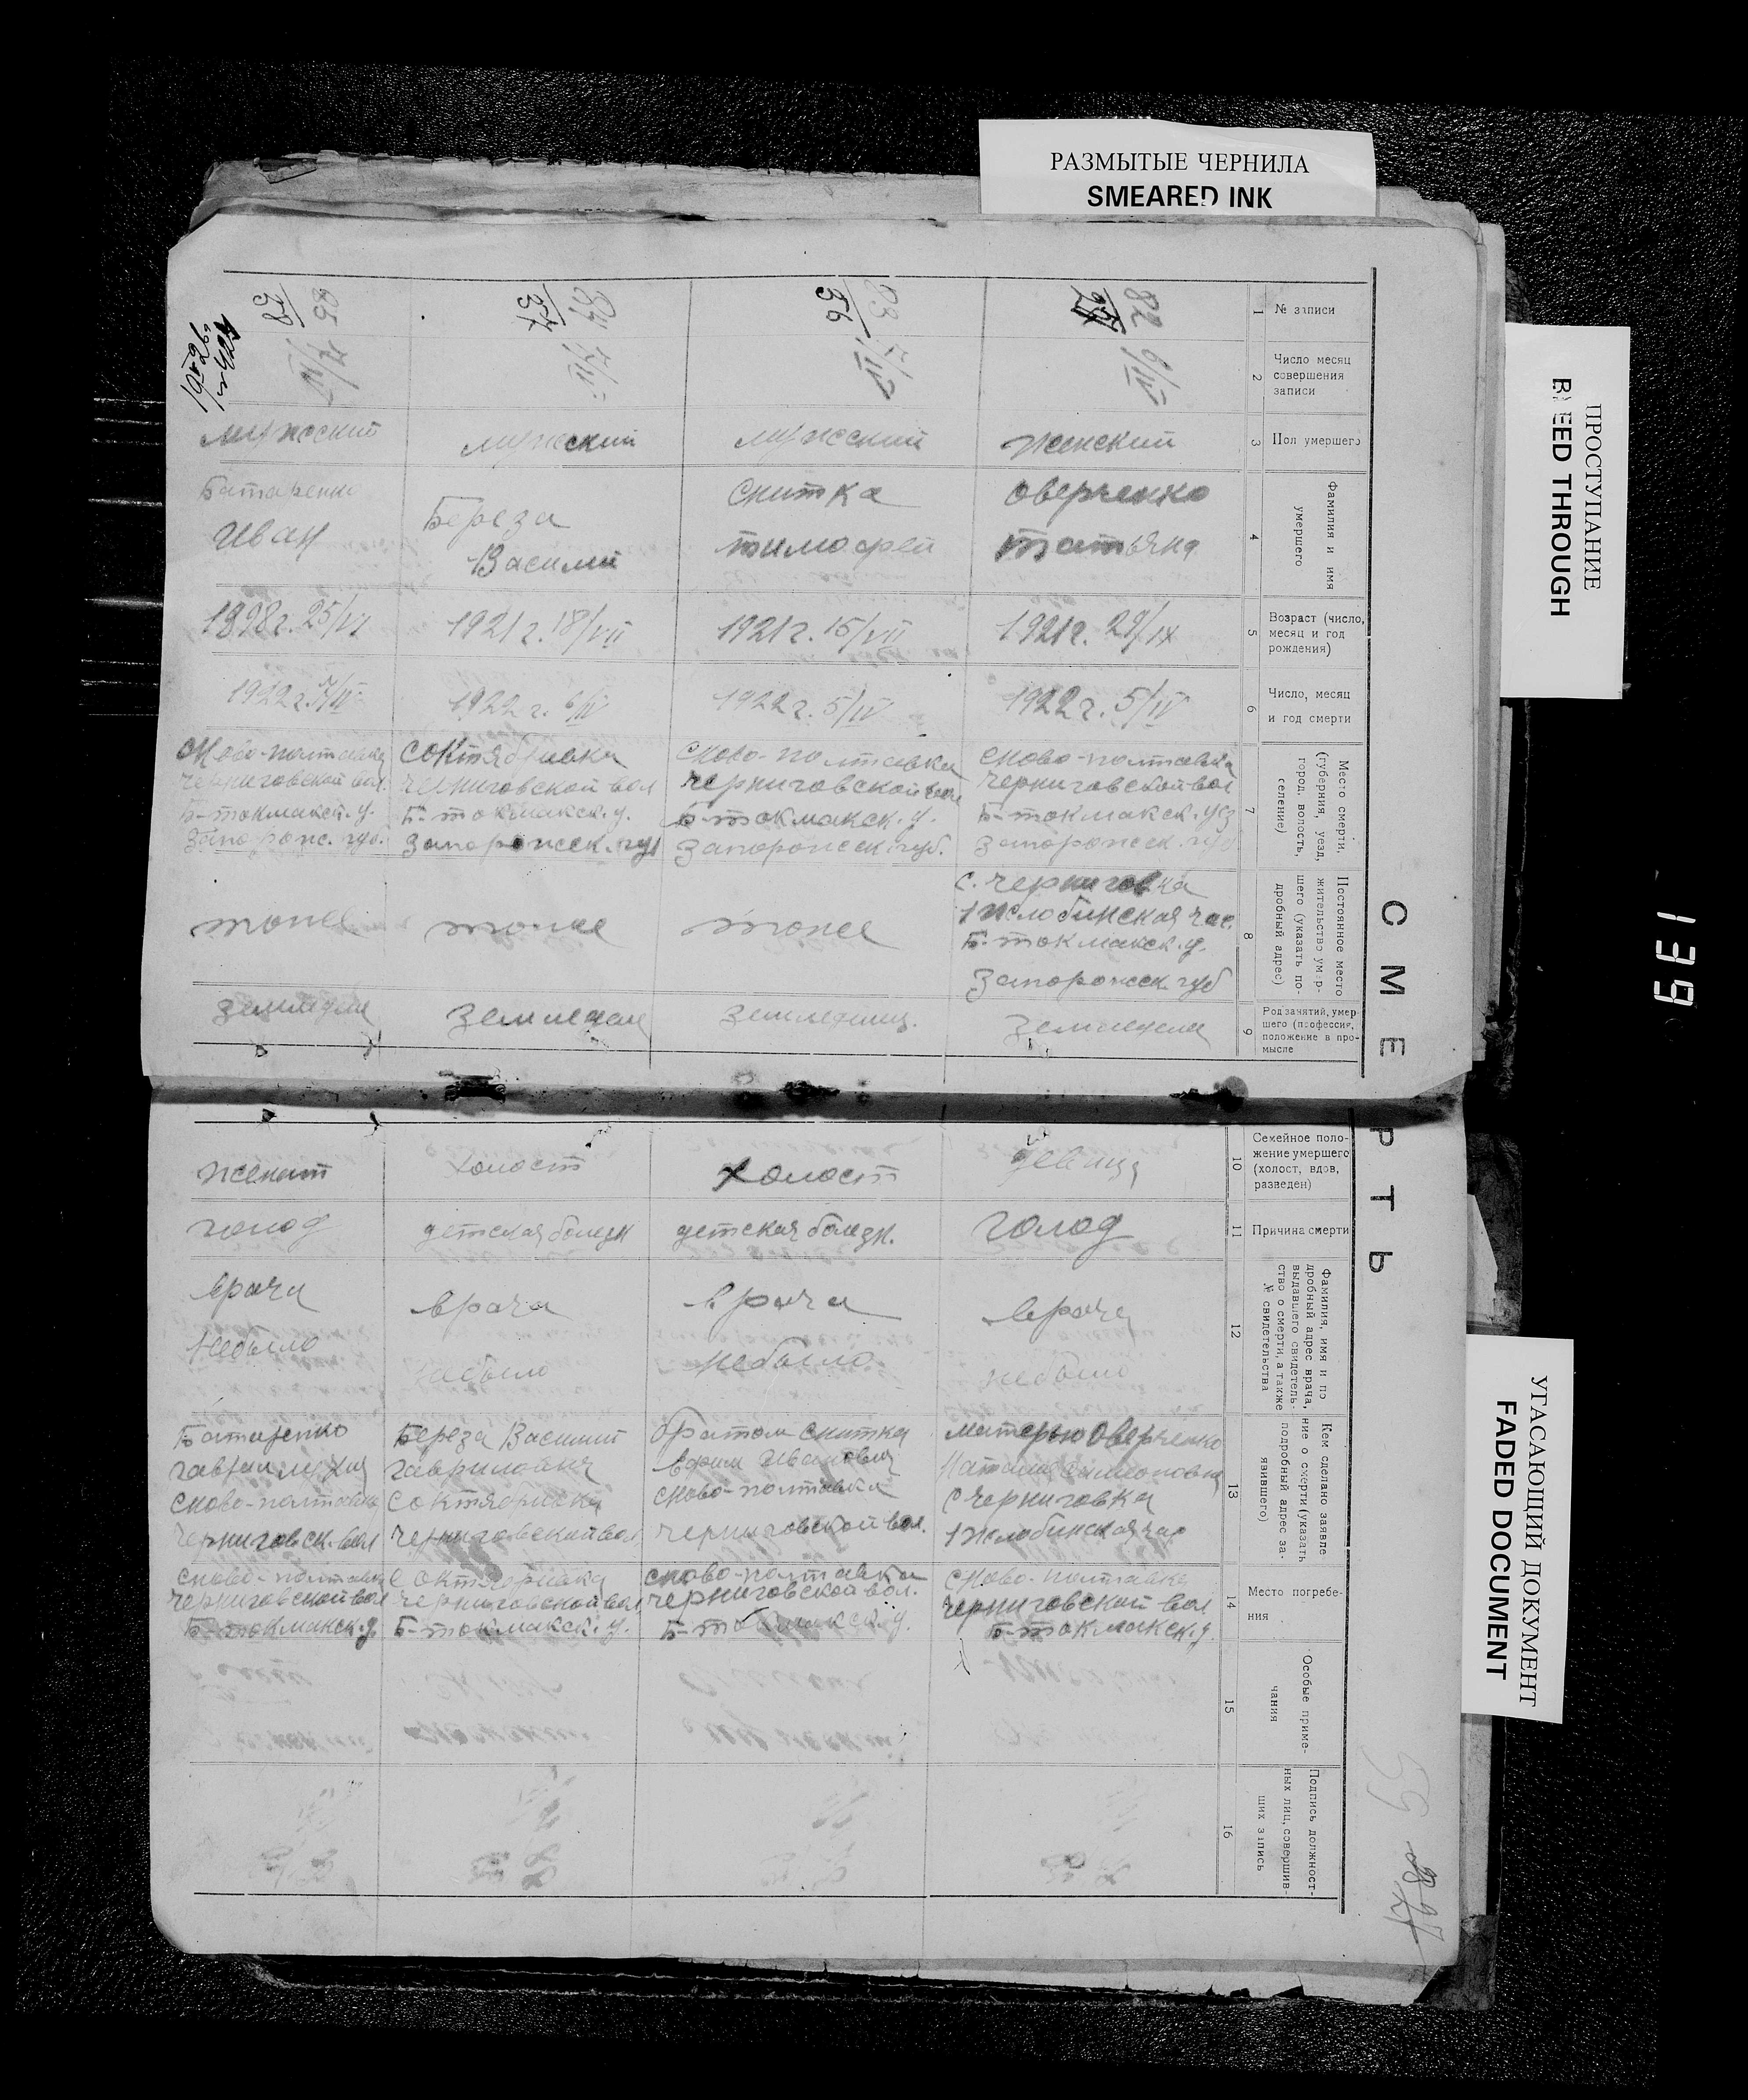 РАЗМЫТЫЕ ЧЕРНИЛА
SMEARED INK
ПРОСТУПАНИЕ
BLEED THROUGH
УГАСАЮЩИЙ ДОКУМЕНТ
FADED DOCUMENT
139
СМЕРТЬ
1 № записи
82
83
36
84
37
85
38
2 Число месяц
совершения
записи
3 Пол умершего
женский
мужеский
мужеский
мужеский
4 Фамилия и имя
умершего
Оверченко
Татьяна
Снитка
Тимофей
Береза
Василий
Батаренко
Иван
5 Возраст (число,
месяц и год
рождения)
1921г. 29/IX
1921г. 15/VII
1921г. 18/VII
1898г. 25/VI
6 Число, месяц
и год смерти
1922г. 5/IV
1922г. 5/IV
1922г. 6/IV
1922г.
7 Место смерти,
(губерния, уезд,
город, волость,
селение)
сново-полтавка
черниговской вол
Б-токмакск. уез
Запорожск. губ
сново-полтавка
черниговской вол
Б-токмакск. у.
Запорожск. губ.
соктябривка
черниговской вол
Б-токмакск. у.
Запорожск. губ
ново-полтавка
черниговской вол.
Б-токмакск. у.
Запорож. губ.
8 Постоянное место
жительство умер-
шего (указать по-
дробный адрес)
с. черниговка
1 Жлобинская час.
Б-токмакск. у.
Запорожск. губ
тоже
тоже
тоже
9 Род занятий, умер-
шего (профессия,
положение в про-
мысле
земледел
землед
земледел
земледел
10 Семейное поло-
жение умершего
(холост, вдов,
разведен)
девица
холост
холост
женат
11 Причина смерти
голод
детская болезн.
детская болезн
голод
12 Фамилия, имя и по
дробный адрес врача,
выдавшего свидетель-
ство о смерти, а также
№ свидетельства
врача
небыло
врача
небыло
врача
небыло
врача
небыло
13 Кем сделано заявле
ние о смерти (указать
подробный адрес за-
явившего)
матерью Оверченко
с черниговка
1 Жлобинская час
братом Снитка
Ефим Иванович
сново-полтавка
черниговской вол.
Береза Василий
Гаврилович
соктябривка
черниговской вол
Батаренко
сново-полтавка
черниговск. вол
14 Место погребе-
ния
сново-полтавка
черниговской вол
Б-токмакск. у.
сново-полтавка
черниговской вол.
Б-токмакск. у.
соктябривка
черниговской вол
Б-токмакск. у.
сново-полтавка
черниговской вол
Б-токмакск. у.
15 Особые приме-
чания
16 Подпись должност-
ных лиц, совершив-
ших запись
59